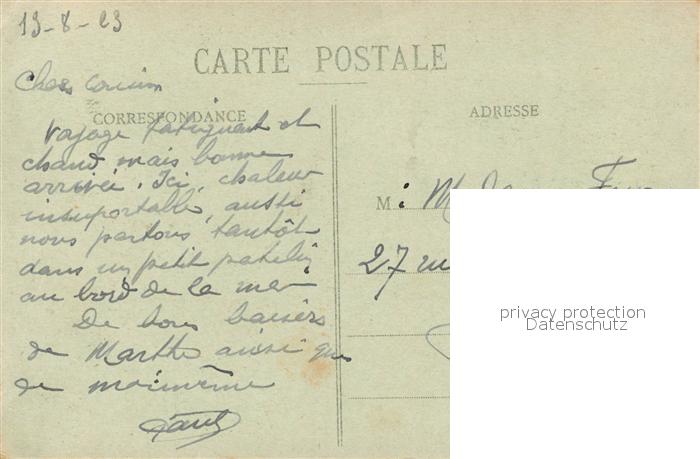 13-8-23
CARTE POSTALE
Chers cousins
CORRESPONDANCE
ADRESSE
Voyage fatiguant et
chaud mais bonne
arrivée. Ici, chaleur
insuportable, aussi
nous partons tantôt
dans un petit patelin
au bord de la mer
De bons baisers
de Marthe aussi que
de moi même
Paul
M:
27 rue
privacy protection
Datenschutz